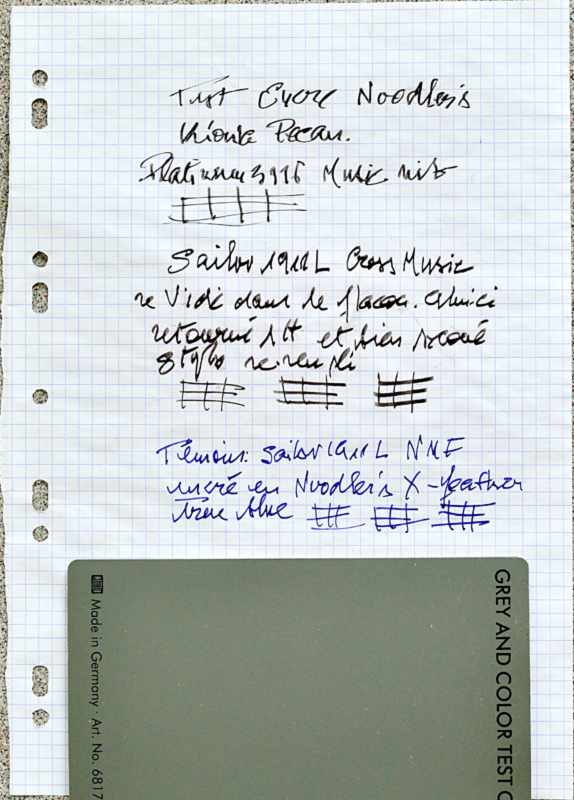 Test Encre Noodler's
Kiowa Pecan.
Platinum 3776 Music nib
Sailor 1911L Cross Music
re Vidé dans le flacon. celui ci
retourné 1H et bien secoué
stylo rerempli
Témoin: Sailor 1911 L NMF
encré en Noodler's X-feather
true blue
GREY AND COLOR TEST C
Made in Germany · Art. No. 6817